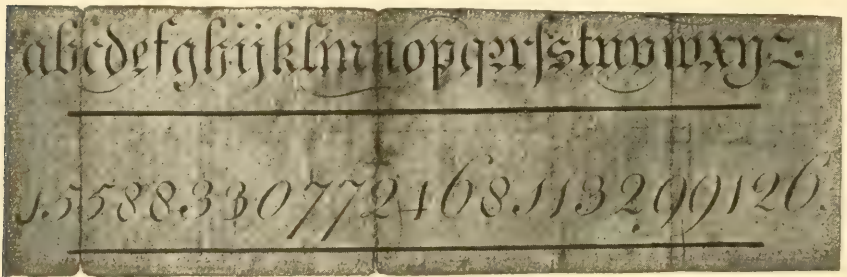 abcdefghijklmnopqꝛrſstuvwxyz
1.5588.330772468.1132.99126.